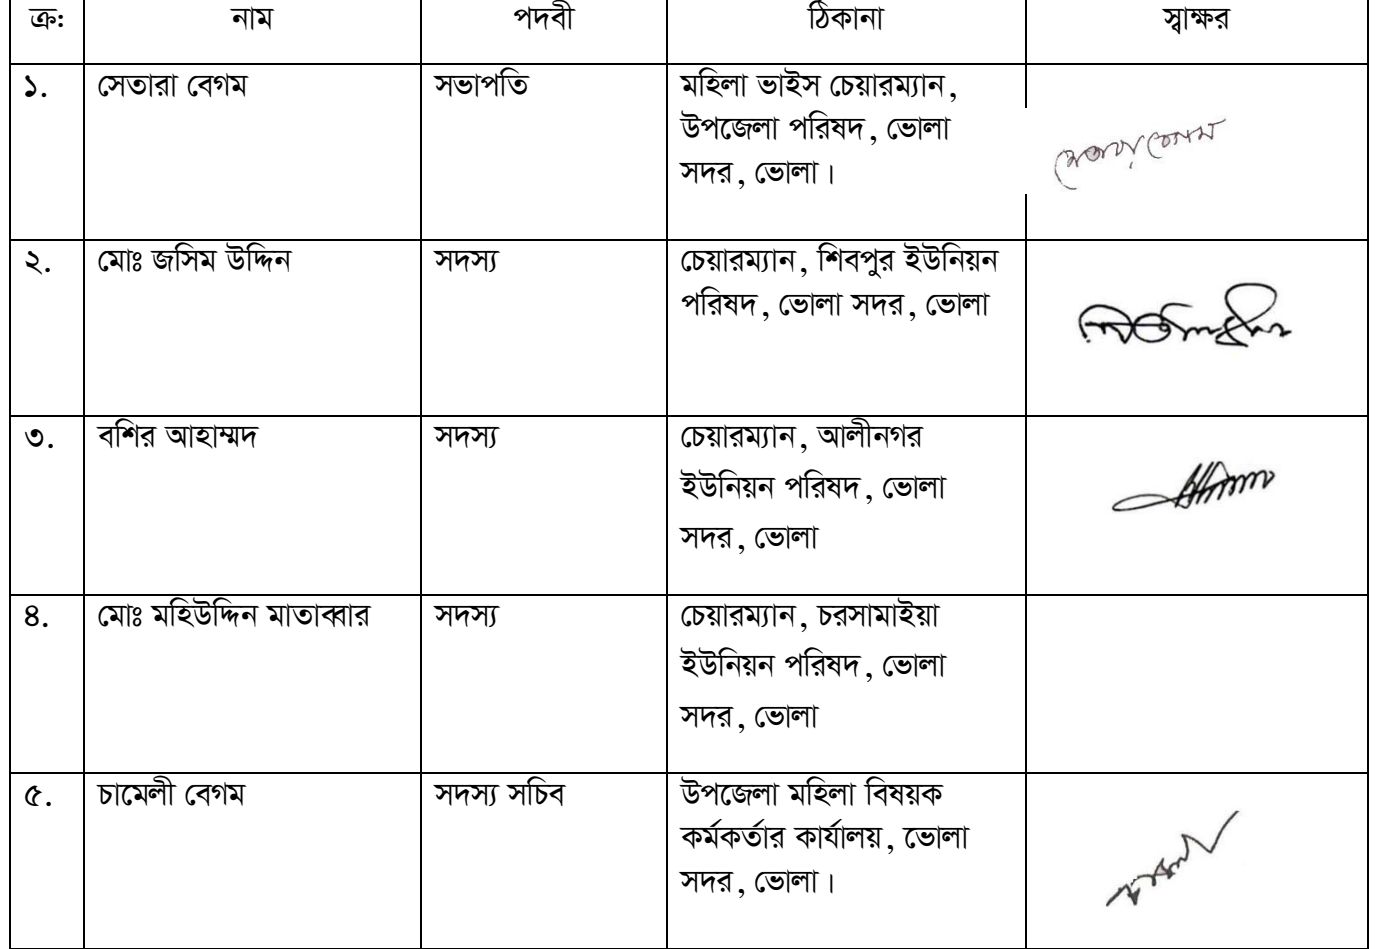 ক্র: নাম পদবী ঠিকানা স্বাক্ষর
১. সেতারা বেগম সভাপতি মহিলা ভাইস চেয়ারম্যান,
উপজেলা পরিষদ, ভোলা
সদর, ভোলা।
সেতারা বেগম
২. মোঃ জসিম উদ্দিন সদস্য চেয়ারম্যান, শিবপুর ইউনিয়ন
পরিষদ, ভোলা সদর, ভোলা
৩. বশির আহাম্মদ সদস্য চেয়ারম্যান, আলীনগর
ইউনিয়ন পরিষদ, ভোলা
সদর, ভোলা
৪. মোঃ মহিউদ্দিন মাতাব্বার সদস্য চেয়ারম্যান, চরসামাইয়া
ইউনিয়ন পরিষদ, ভোলা
সদর, ভোলা
৫. চামেলী বেগম সদস্য সচিব উপজেলা মহিলা বিষয়ক
কর্মকর্তার কার্যালয়, ভোলা
সদর, ভোলা।